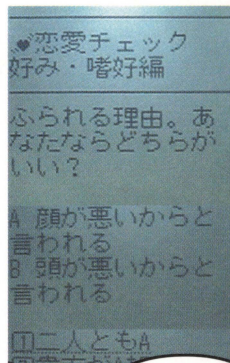 ♥恋愛チェック
好み・嗜好編
ふられる理由。あ
なたならどちらが
いい？
A 顔が悪いからと
言われる
B 頭が悪いからと
言われる
1二人ともA